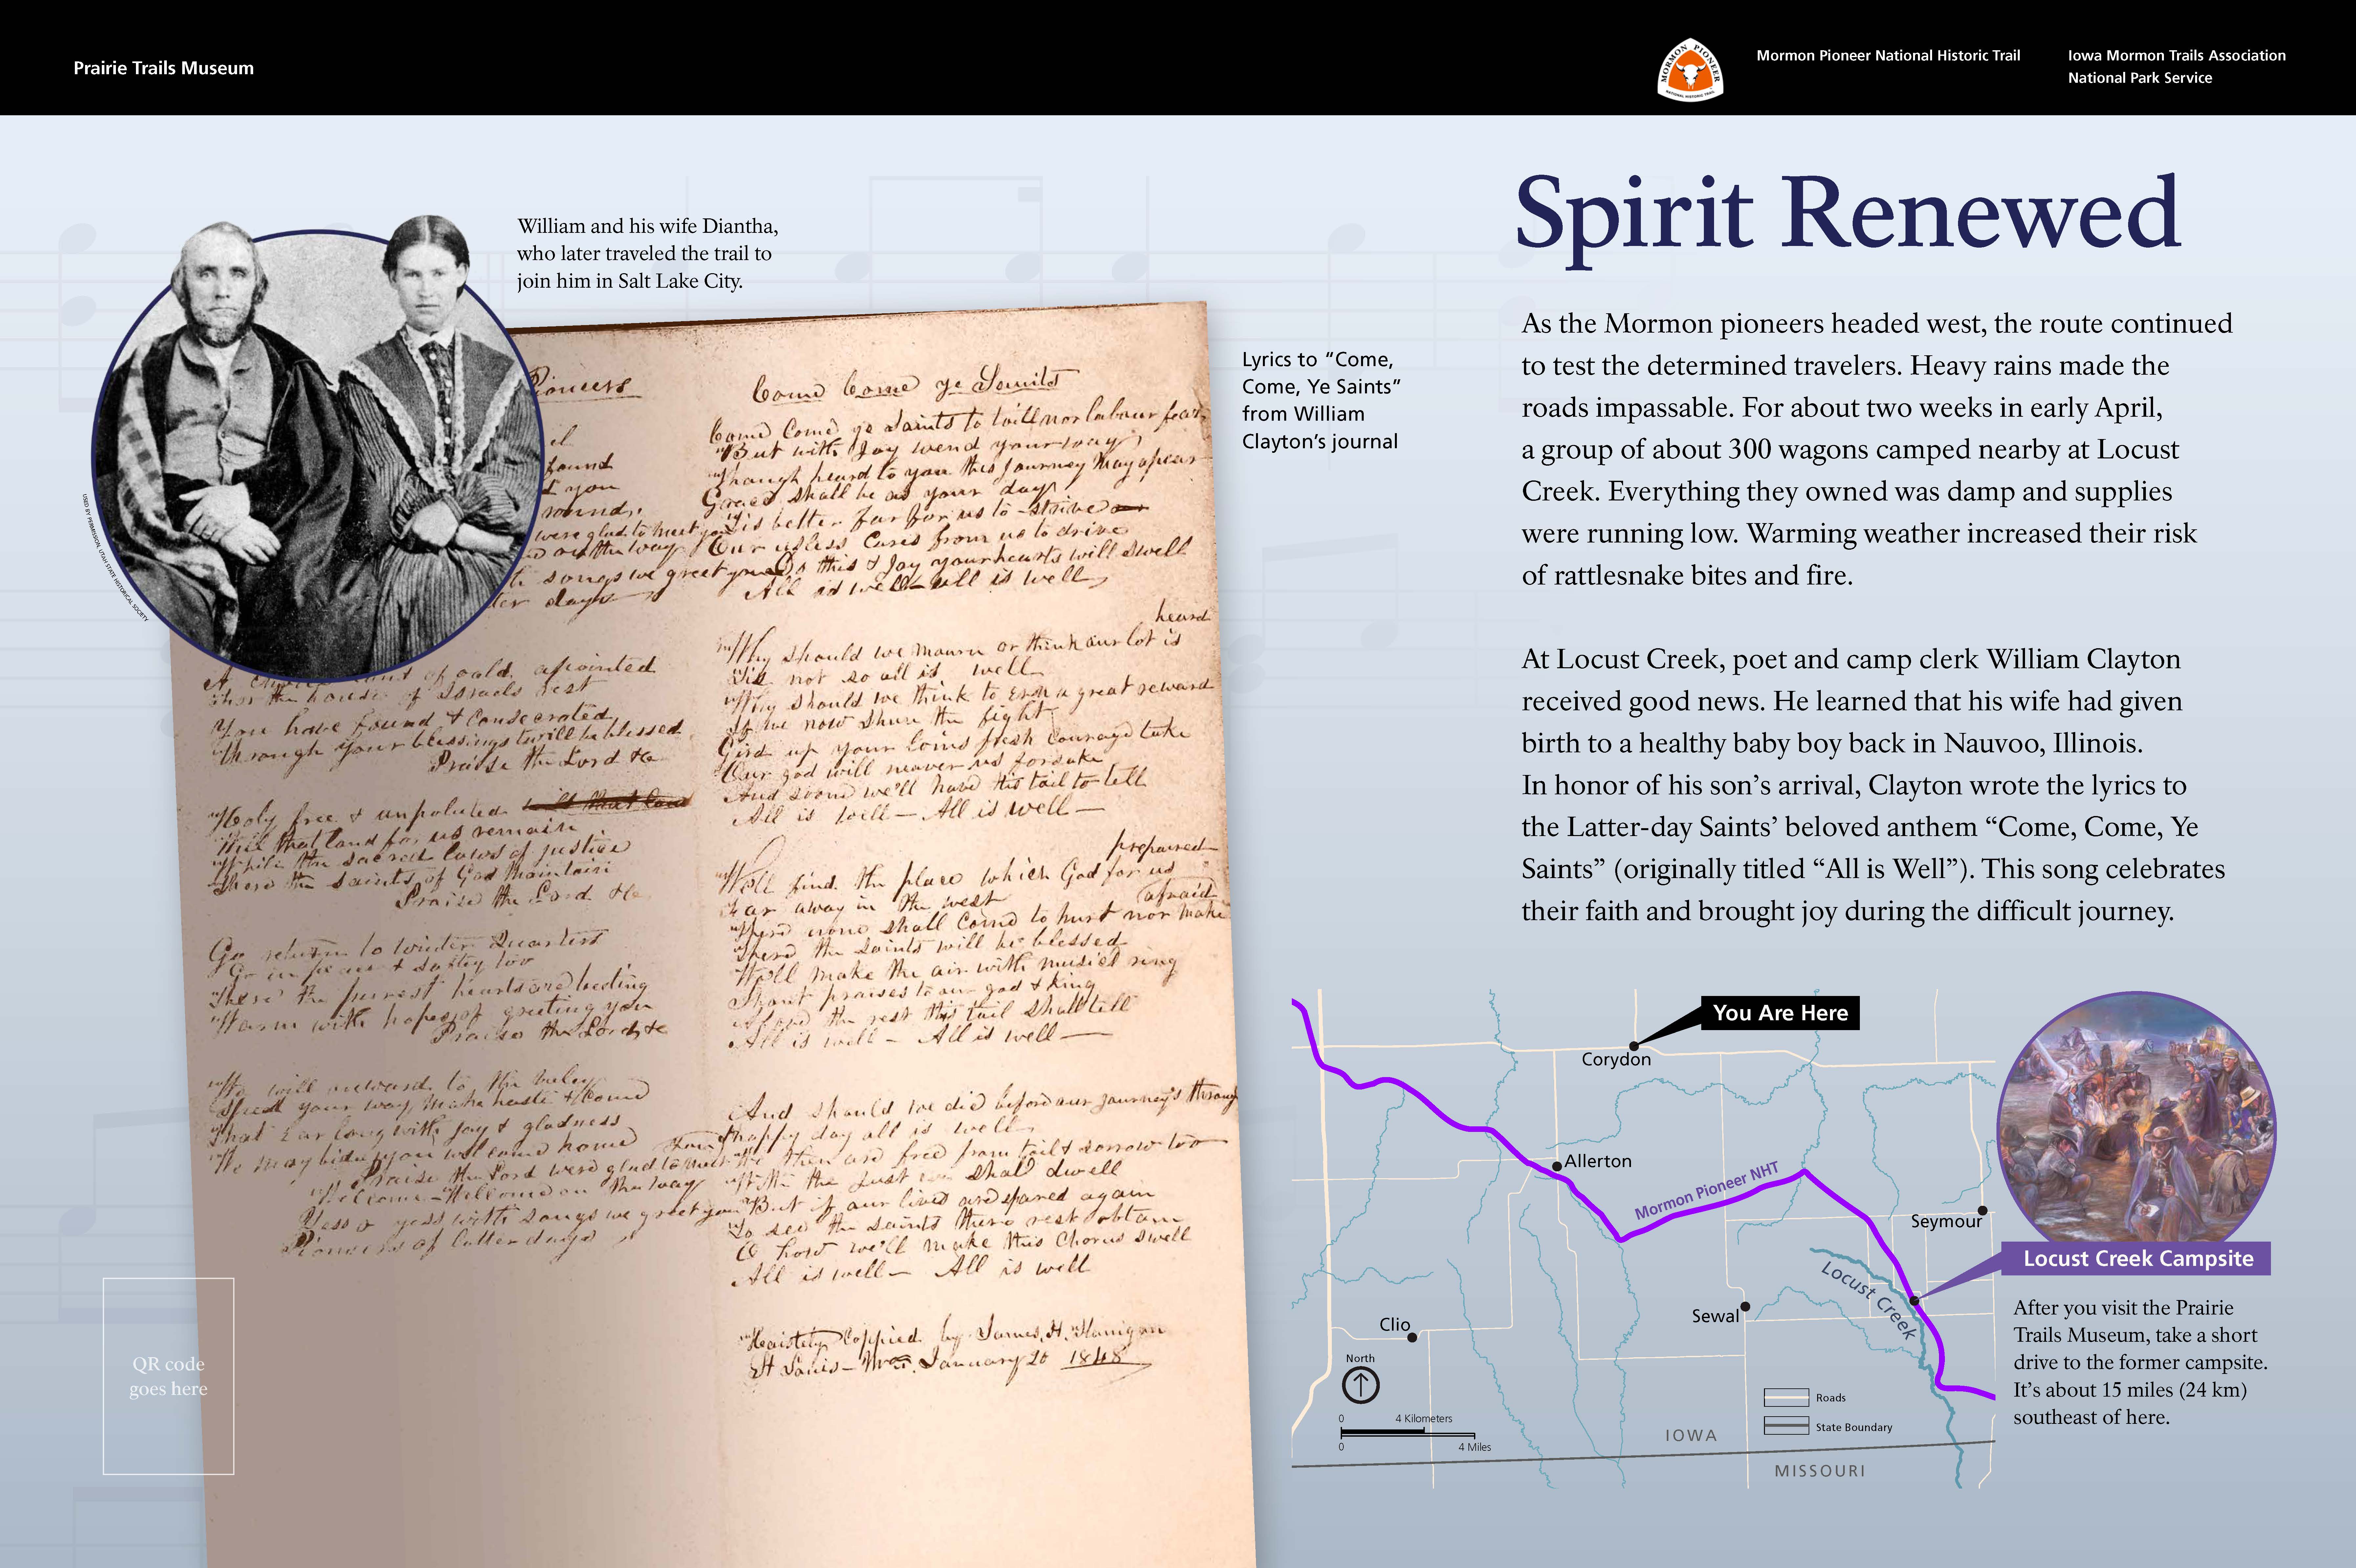 Prairie Trails Museum
MORMON PIONEER
NATIONAL HISTORIC TRAIL
Mormon Pioneer National Historic Trail
Iowa Mormon Trails Association
National Park Service
William and his wife Diantha,
who later traveled the trail to
join him in Salt Lake City.
USED BY PERMISSION, UTAH STATE HISTORICAL SOCIETY
Pioneers
found
you
round,
were glad to meet you
on the way
songs we greet you
days
of oald apointed
the house of Israels rest
You have found & consecrated
Through your blessings twill be blessed
Praise the Lord &c
Holy free & unpoluted
that land for us remain
While the sacred laws of justice
There the saints of God maintain
Praise the Lord &c
Go return to winter Quarters
Go in peace & safty too
There the purest hearts are beating
Warm with hopes of greeting you
Praise the Lord, &c
We will onward to the valey
Speed your way, make haste & Come
That Ear long with joy & gladness
We may bid you wellcome home
Praise the Lord were glad to meet
Wellcome - Wellcome on the way
Yess o yess with songs we greet you
Pioneers of latter days
Come Come ye Saints
Come Come ye Saints to toill nor labour fear
But with Joy wend your way
Though heard to you this Journey May apear
Grace shall be as your day
Tis better far for us to strive
Our usless Cares from us to drive
Do this & Joy your hearts will swell
All is well all is well
heard
Why should we mourn or think our lot is
Tis not so all is well
Why should we think to Ern a great reward
If we now shun the fight
Gird up your loins fresh Courage take
Our god will neaver us forsake
And soone we'll have this tail to tell
All is well – All is well –
prepaired
We'll find the place which God for us
Far away in the west
afraid
Where none shall Come to hurt nor make
There the Saints will be blessed
We'll make the air with musick ring
Shout praises to our god & king
Above the rest this tail shall tell
All is well – All is well –
And should we die before our journey's through
happy day all is well
We then are free from toil & sorrow too
With the just we shall dwell
But if our lives are spared again
To see the saints there rest obtain
O how we'll make this Chorus swell
All is well – All is well
Haistely Coppied by James, H. Flanigan
St Louis – January 20 1848
Lyrics to “Come,
Come, Ye Saints”
from William
Clayton’s journal
QR code
goes here
Spirit Renewed
As the Mormon pioneers headed west, the route continued
to test the determined travelers. Heavy rains made the
roads impassable. For about two weeks in early April,
a group of about 300 wagons camped nearby at Locust
Creek. Everything they owned was damp and supplies
were running low. Warming weather increased their risk
of rattlesnake bites and fire.
At Locust Creek, poet and camp clerk William Clayton
received good news. He learned that his wife had given
birth to a healthy baby boy back in Nauvoo, Illinois.
In honor of his son’s arrival, Clayton wrote the lyrics to
the Latter-day Saints’ beloved anthem “Come, Come, Ye
Saints” (originally titled “All is Well”). This song celebrates
their faith and brought joy during the difficult journey.
You Are Here
Corydon
Allerton
Mormon Pioneer NHT
Seymour
Locust Creek
Sewal
Clio
North
0 4 Kilometers
0 4 Miles
Roads
State Boundary
IOWA
MISSOURI
Locust Creek Campsite
After you visit the Prairie
Trails Museum, take a short
drive to the former campsite.
It’s about 15 miles (24 km)
southeast of here.